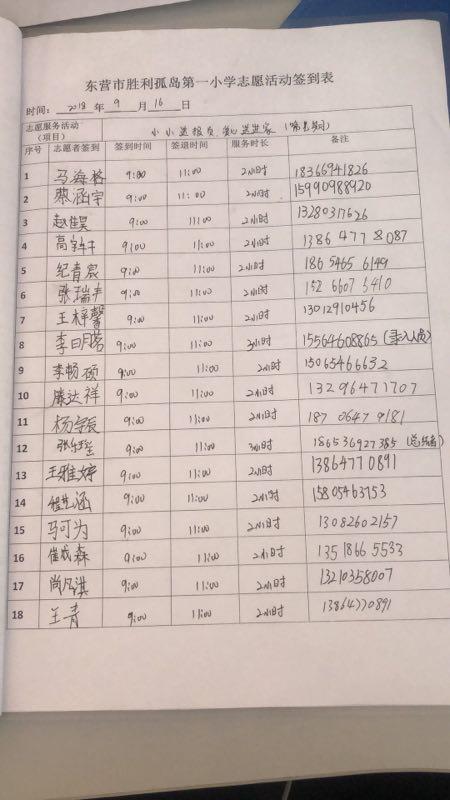 东营市胜利孤岛第一小学志愿活动签到表
时间: 2018 年 9 月 16 日
志愿服务活动(项目) 小小送报员,爱心送万家
序号 志愿者签到 签到时间 签退时间 服务时长 备注
1 马海格 9:00 11:00 2小时 18366941826
2 蔡涵宇 9:00 11:00 2小时 15990988920
3 赵佳昊 9:00 11:00 2小时 13280317626
4 9:00 11:00 2小时 1386 477 8087
5 纪青宸 9:00 11:00 2小时 186 5465 6149
6 张瑞卉 9:00 11:00 2小时 152 6607 5410
7 王梓馨 9:00 11:00 2小时 13012910456
8 李曰明茗 9:00 11:00 3小时 15564608865 (录入人员)
9 李畅硕 9:00 11:00 2小时 15065466632
10 滕达祥 9:00 11:00 2小时 13296471707
11 杨宇辰 9:00 11:00 2小时 187 0647 9181
12 9:00 11:00 3小时 18653692785
13 王雅婷 9:00 11:00 2小时 13864770891
14 程艺涵 9:00 11:00 2小时 15805463753
15 马可为 9:00 11:00 2小时 13082602157
16 崔成森 9:00 11:00 2小时 1351866 5533
17 尚凡淇 9:00 11:00 2小时 13210358007
18 王青 9:00 11:00 2小时 13864770891